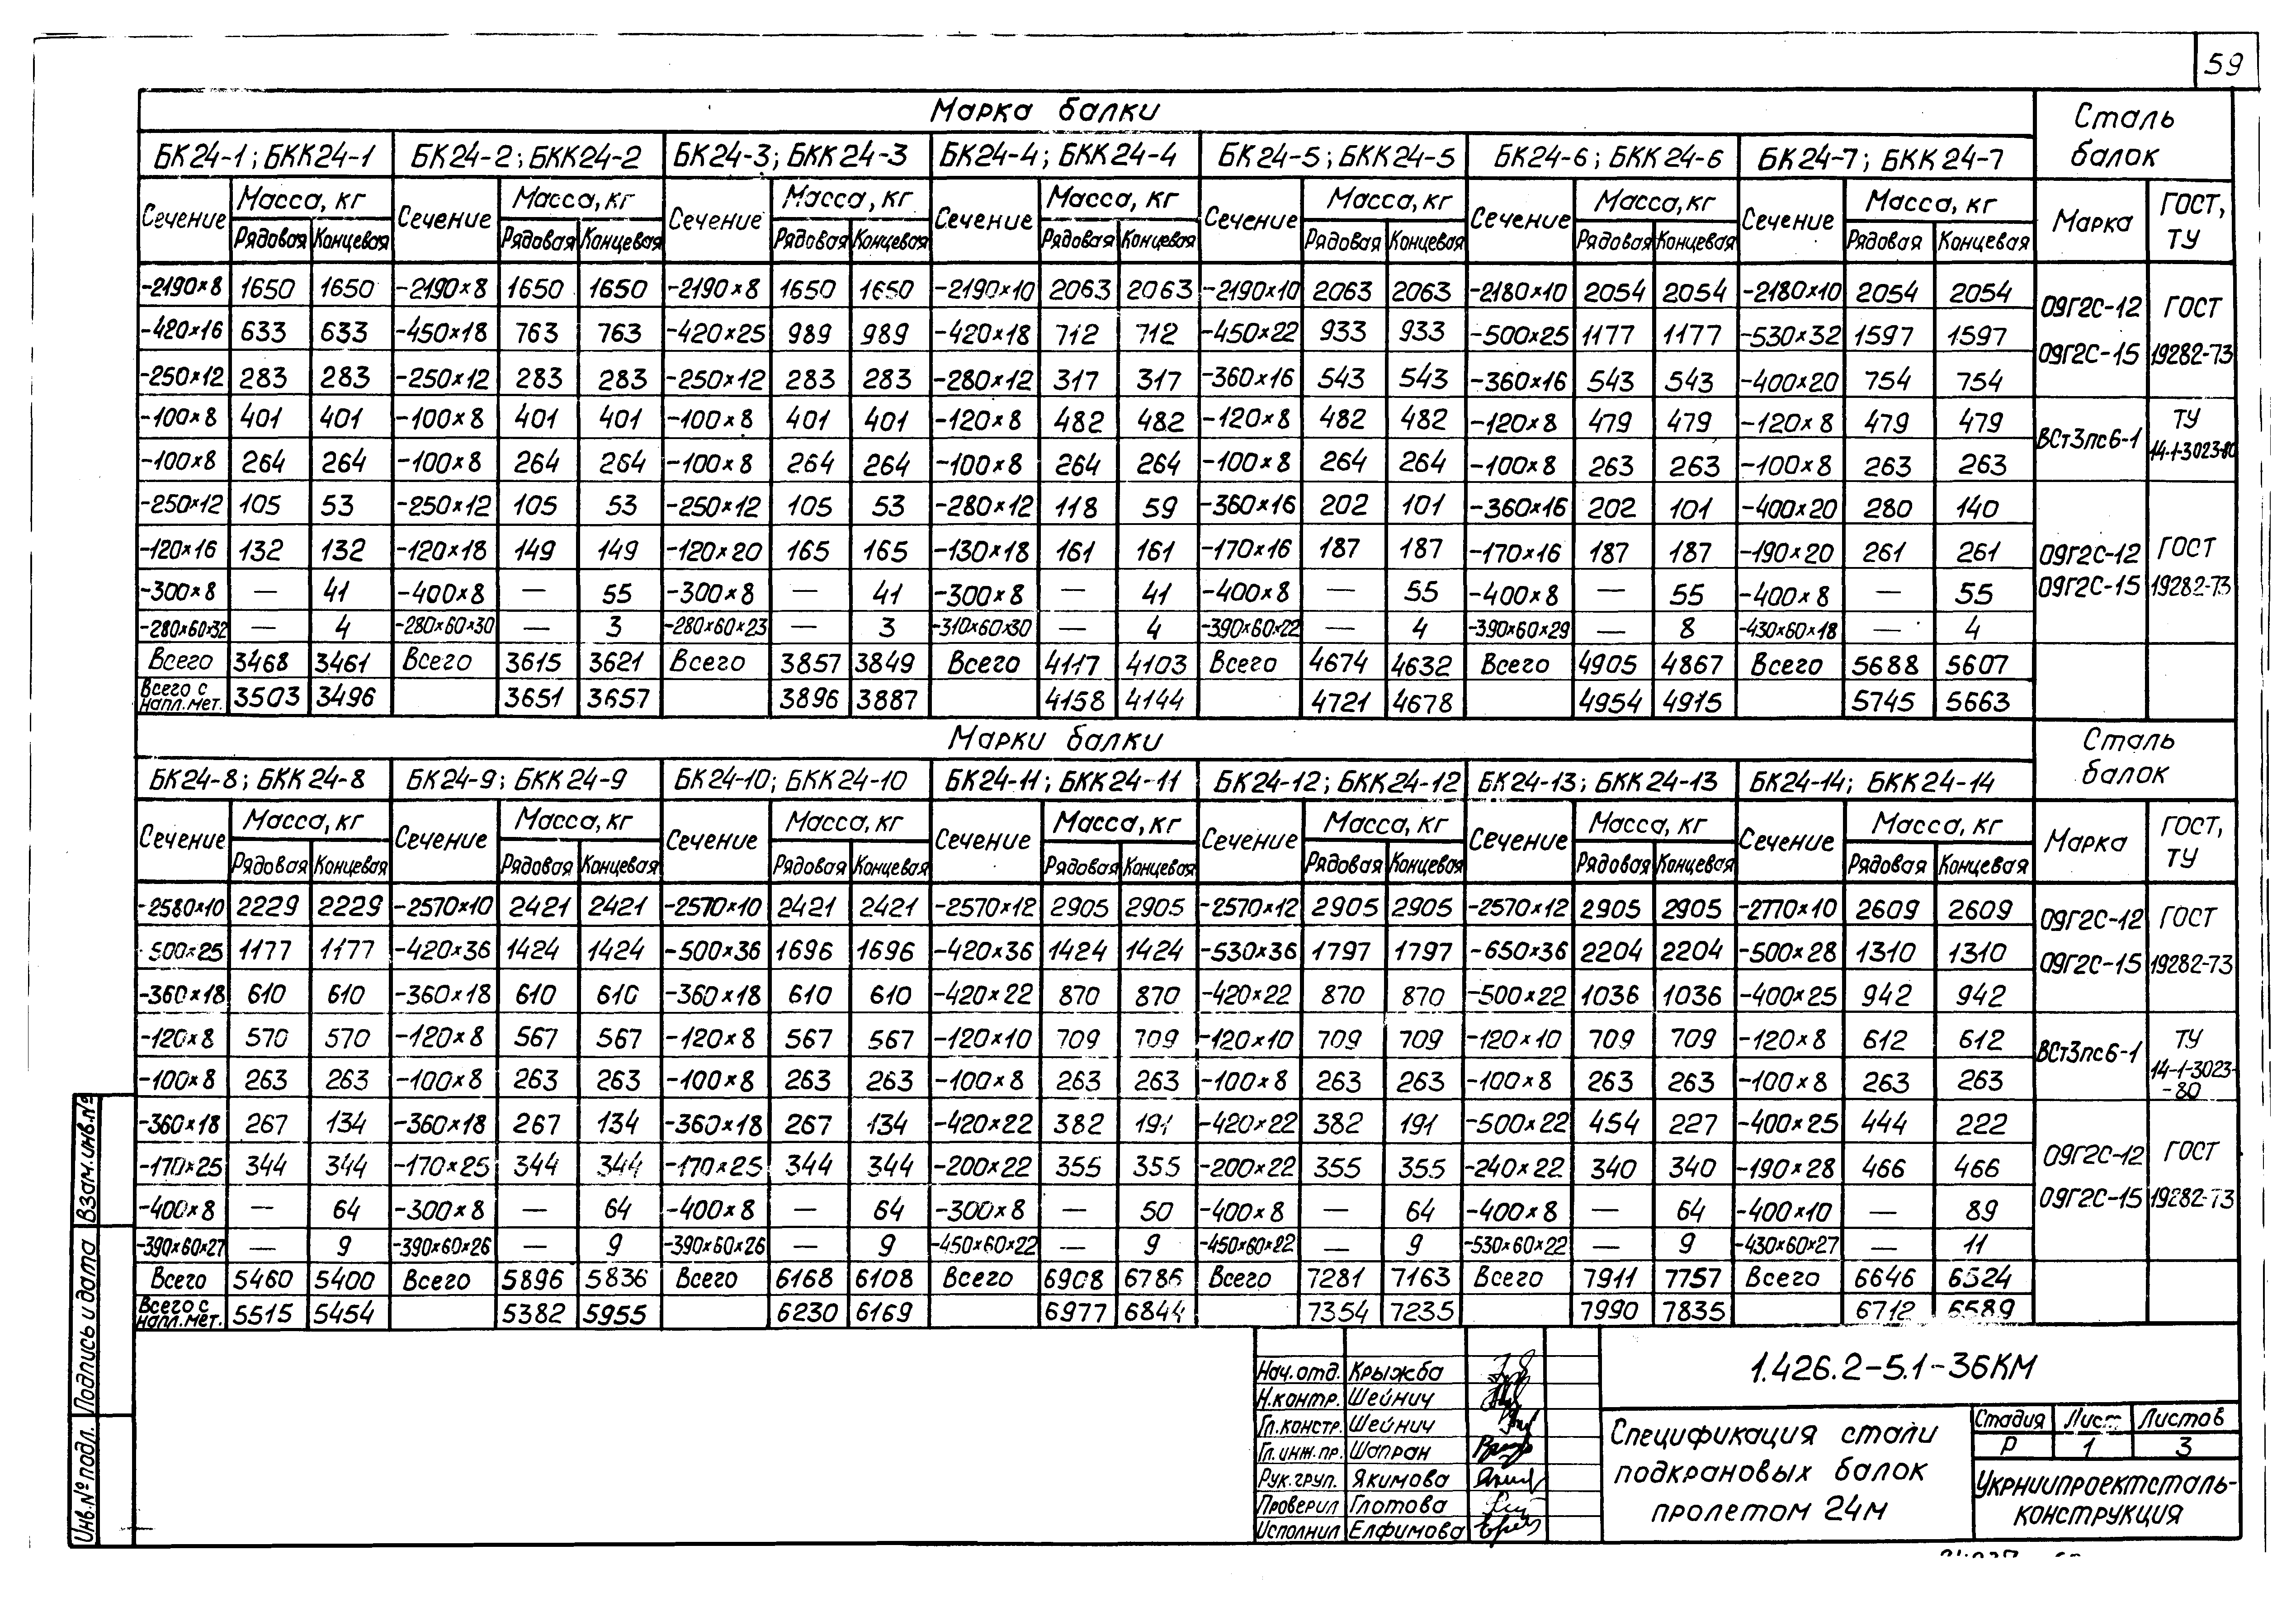 59
Марка балки
Сталь балок
БК24-1; БКК24-1 БК24-2; БКК24-2 БК24-3; БКК24-3 БК24-4; БКК24-4 БК24-5; БКК24-5 БК24-6; БКК24-6 БК24-7; БКК24-7
Сечение Масса, кг Сечение Масса, кг Сечение Масса, кг Сечение Масса, кг Сечение Масса, кг Сечение Масса, кг Сечение Масса, кг Марка ГОСТ, ТУ
Рядовая Концевая Рядовая Концевая Рядовая Концевая Рядовая Концевая Рядовая Концевая Рядовая Концевая Рядовая Концевая
-2190×8 1650 1650 -2190×8 1650 1650 -2190×8 1650 1650 -2190×10 2063 2063 -2190×10 2063 2063 -2180×10 2054 2054 -2180×10 2054 2054 09Г2С-12 ГОСТ
-420×16 633 633 -450×18 763 763 -420×25 989 989 -420×18 712 712 -450×22 933 933 -500×25 1177 1177 -530×32 1597 1597 09Г2С-15 19282-73
-250×12 283 283 -250×12 283 283 -250×12 283 283 -280×12 317 317 -360×16 543 543 -360×16 543 543 -400×20 754 754
-100×8 401 401 -100×8 401 401 -100×8 401 401 -120×8 482 482 -120×8 482 482 -120×8 479 479 -120×8 479 479 ВСт3пс6-1 ТУ
-100×8 264 264 -100×8 264 264 -100×8 264 264 -100×8 264 264 -100×8 264 264 -100×8 263 263 -100×8 263 263 14-1-3023-80
-250×12 105 53 -250×12 105 53 -250×12 105 53 -280×12 118 59 -360×16 202 101 -360×16 202 101 -400×20 280 140
-120×16 132 132 -120×18 149 149 -120×20 165 165 -130×18 161 161 -170×16 187 187 -170×16 187 187 -190×20 261 261 09Г2С-12 ГОСТ
-300×8 — 41 -400×8 — 55 -300×8 — 41 -300×8 — 41 -400×8 — 55 -400×8 — 55 -400×8 — 55 09Г2С-15 19282-73
-280×60×32 — 4 -280×60×30 — 3 -280×60×23 — 3 -310×60×30 — 4 -390×60×22 — 4 -390×60×29 — 8 -430×60×18 — 4
Всего 3468 3461 Всего 3615 3621 Всего 3857 3849 Всего 4117 4103 Всего 4674 4632 Всего 4905 4867 Всего 5688 5607
Всего с напл.мет. 3503 3496 3651 3657 3896 3887 4158 4144 4721 4678 4954 4915 5745 5663
Марки балки
Сталь балок
БК24-8; БКК24-8 БК24-9; БКК24-9 БК24-10; БКК24-10 БК24-11; БКК24-11 БК24-12; БКК24-12 БК24-13; БКК24-13 БК24-14; БКК24-14
Сечение Масса, кг Сечение Масса, кг Сечение Масса, кг Сечение Масса, кг Сечение Масса, кг Сечение Масса, кг Сечение Масса, кг Марка ГОСТ, ТУ
Рядовая Концевая Рядовая Концевая Рядовая Концевая Рядовая Концевая Рядовая Концевая Рядовая Концевая Рядовая Концевая
-2580×10 2229 2229 -2570×10 2421 2421 -2570×10 2421 2421 -2570×12 2905 2905 -2570×12 2905 2905 -2570×12 2905 2905 -2770×10 2609 2609 09Г2С-12 ГОСТ
-500×25 1177 1177 -420×36 1424 1424 -500×36 1696 1696 -420×36 1424 1424 -530×36 1797 1797 -650×36 2204 2204 -500×28 1310 1310 09Г2С-15 19282-73
-360×18 610 610 -360×18 610 610 -360×18 610 610 -420×22 870 870 -420×22 870 870 -500×22 1036 1036 -400×25 942 942
-120×8 570 570 -120×8 567 567 -120×8 567 567 -120×10 709 709 -120×10 709 709 -120×10 709 709 -120×8 612 612 ВСт3пс6-1 ТУ
-100×8 263 263 -100×8 263 263 -100×8 263 263 -100×8 263 263 -100×8 263 263 -100×8 263 263 -100×8 263 263 14-1-3023--80
-360×18 267 134 -360×18 267 134 -360×18 267 134 -420×22 382 191 -420×22 382 191 -500×22 454 227 -400×25 444 222
-170×25 344 344 -170×25 344 344 -170×25 344 344 -200×22 355 355 -200×22 355 355 -240×22 340 340 -190×28 466 466 09Г2С-12 ГОСТ
-400×8 — 64 -300×8 — 64 -400×8 — 64 -300×8 — 50 -400×8 — 64 -400×8 — 64 -400×10 — 89 09Г2С-15 19282-73
-390×60×27 — 9 -390×60×26 — 9 -390×60×26 — 9 -450×60×22 — 9 -450×60×22 — 9 -530×60×22 — 9 -430×60×27 — 11
Всего 5460 5400 Всего 5896 5836 Всего 6168 6108 Всего 6908 6786 Всего 7281 7163 Всего 7911 7757 Всего 6646 6524
Всего с напл.мет. 5515 5454 5382 5955 6230 6169 6977 6844 7354 7235 7990 7835 6712 6589
Взам.инв.№
Подпись и дата
Инв.№ подл.
Нач.отд. Крыжба
Н.контр. Шейнич
Гл.констр. Шейнич
Гл.инж.пр. Шапран
Рук.груп. Якимова
Проверил Глотова
Исполнил Елфимова
1.426.2-5.1-36КМ
Спецификация стали
подкрановых балок
пролетом 24м
Стадия Лист Листов
Р 1 3
Укрниипроектсталь-
конструкция